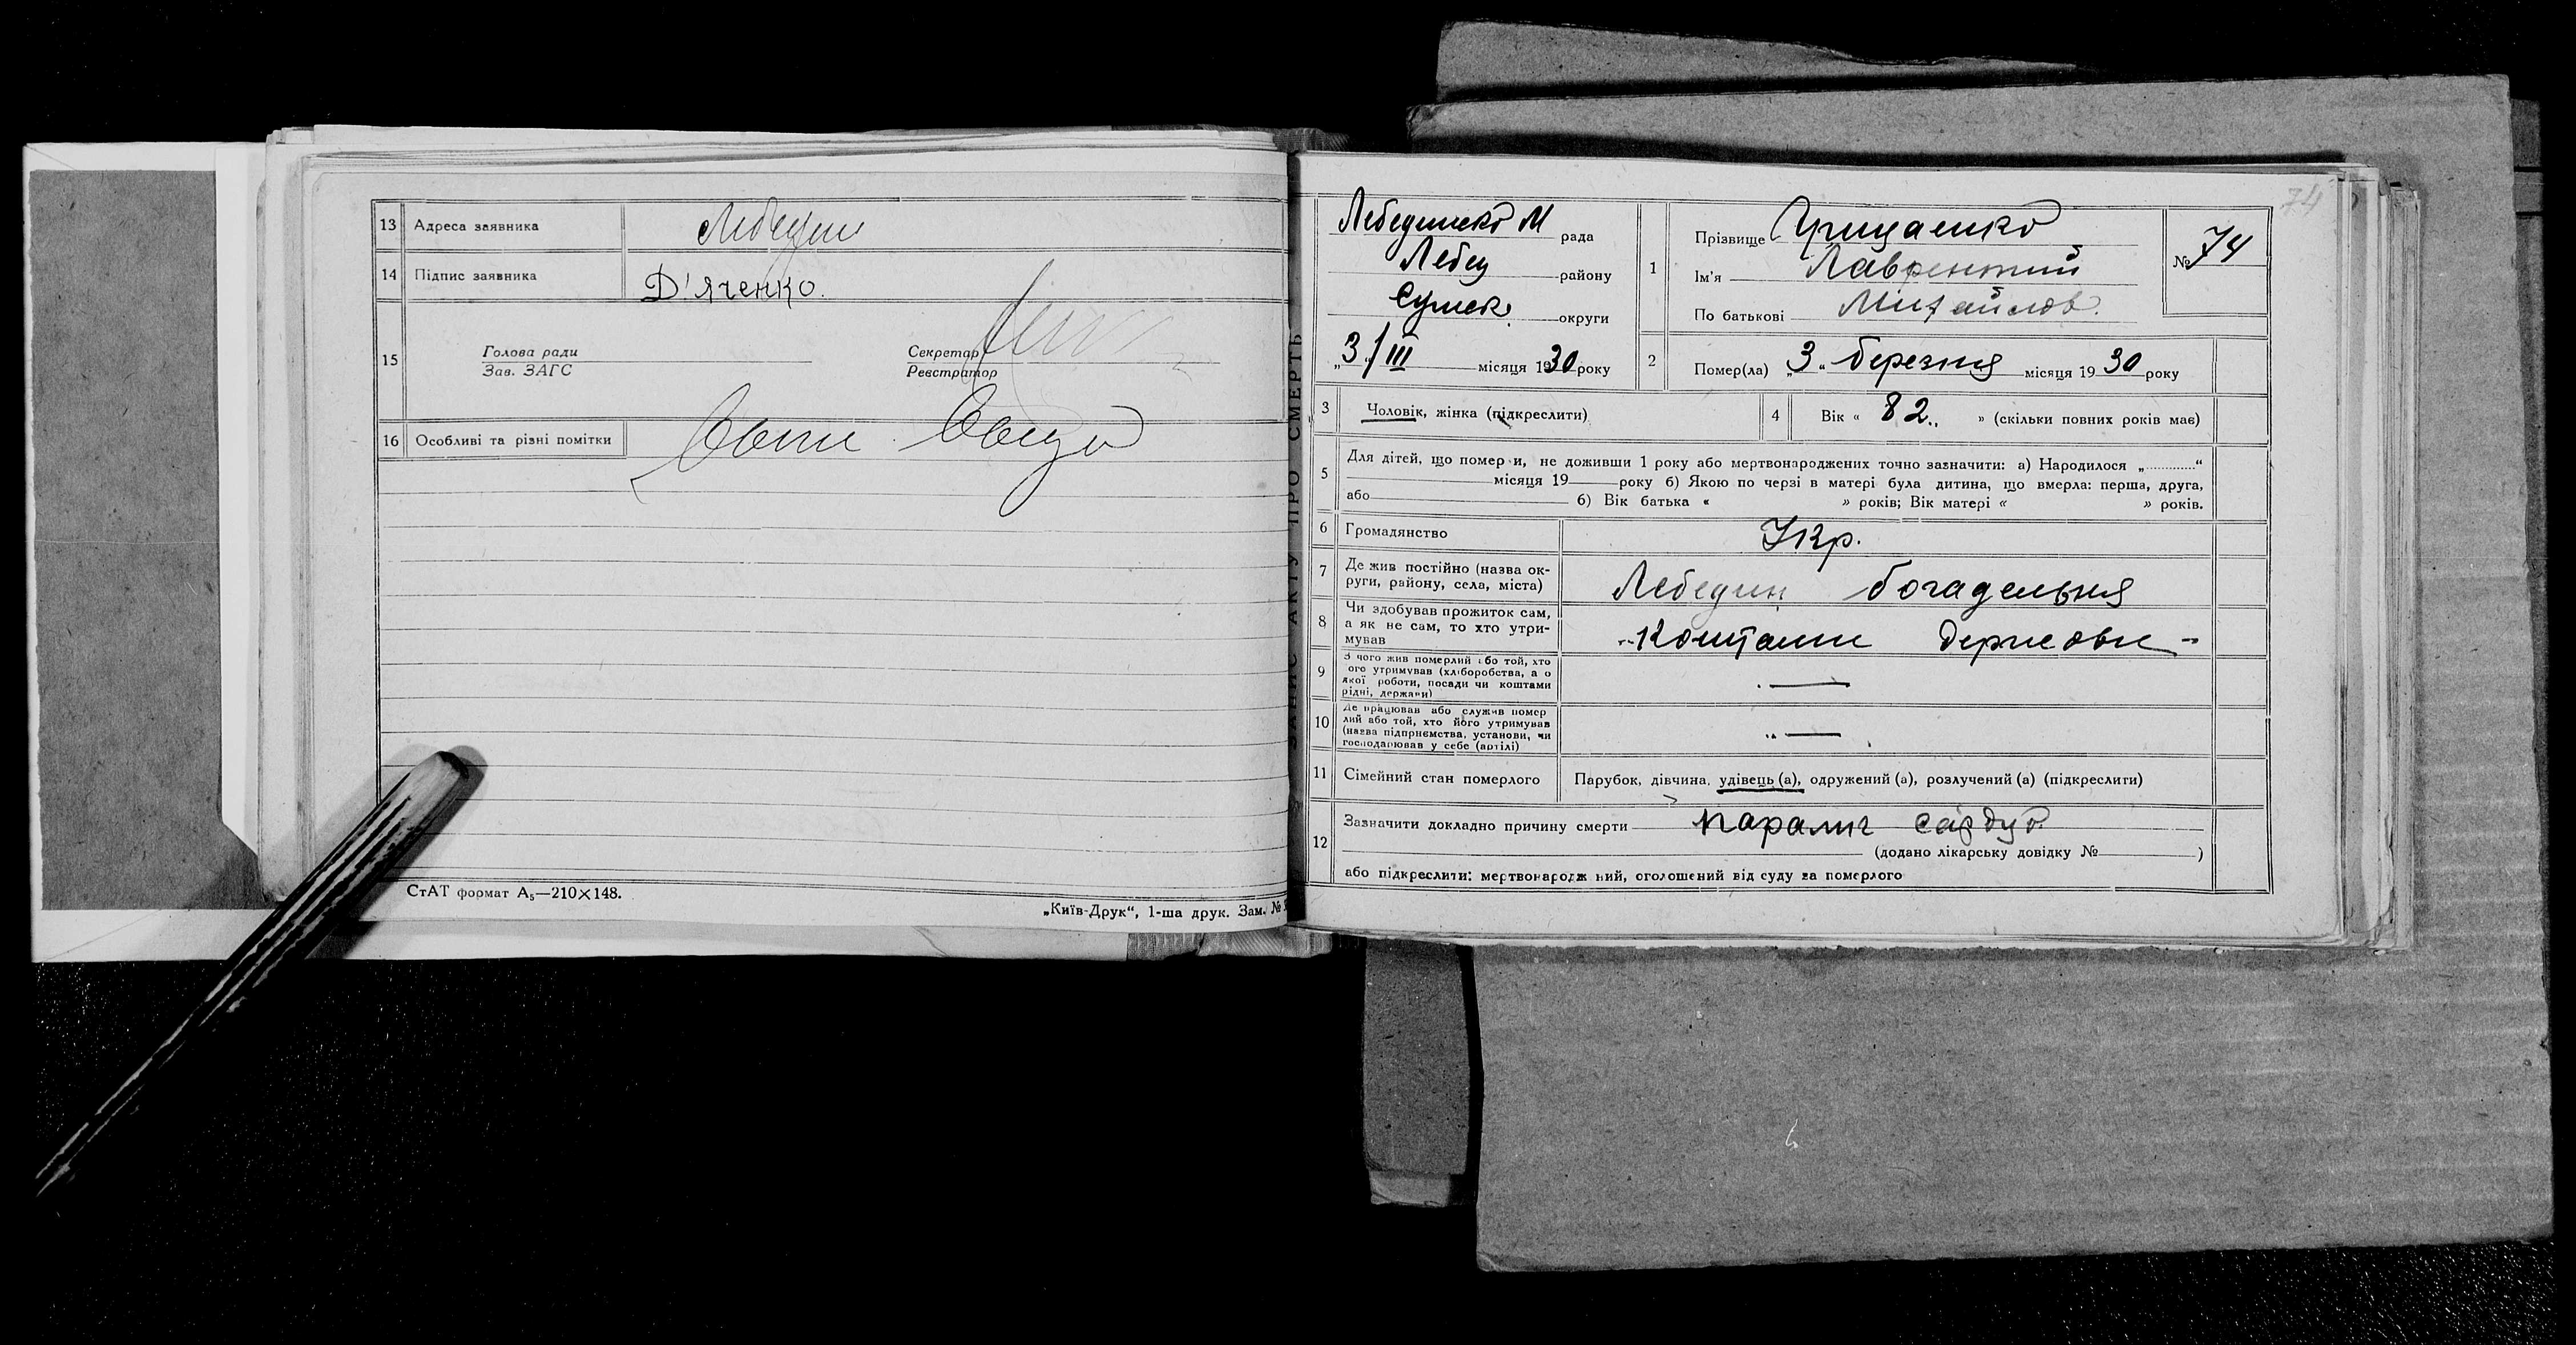 13 Адреса заявника Лебедин
14 Підпис заявника Д'яченко.
15
Голова ради
Зав. ЗАГС
Секретар
Реєстратор
16 Особливі та різні помітки
СтАТ формат А₅—210×148.
„Київ-Друк“, 1-ша друк. Зам. №
ЗАПИС АКТУ ПРО СМЕРТЬ
74
Лебединсько М рада
Лебед району
Сумськ. округи
„3/III місяця 1930 року
1
Прізвище Грищаенко
Ім'я Лаврентий
По батькові Михайлов.
№ 74
2 Помер(ла) „3“ березня місяця 1930 року
3 Чоловік, жінка (підкреслити)
4 Вік « 82.. » (скільки повних років має)
5 Для дітей, що помер и, не доживши 1 року або мертвонароджених точно зазначити: а) Народилося „............“
місяця 19 року б) Якою по черзі в матері була дитина, що вмерла: перша, друга,
або б) Вік батька « » років; Вік матері « » років.
6 Громадянство Укр.
7 Де жив постійно (назва ок-
руги, району, села, міста) Лебедин богадельня
8 Чи здобував прожиток сам,
а як не сам, то хто утри-
мував Коштами держсовы
9 З чого жив померлий або той, хто
ого утримував (хліборобства, а о
якої роботи, посади чи коштами
рідні, держави) —
10 Де працював або служив помер
лий або той, хто його утримував
(назва підприємства, установи, чи
господарював у себе (артілі) —
11 Сімейний стан померлого Парубок, дівчина, удівець (а), одружений (а), розлучений (а) (підкреслити)
12 Зазначити докладно причину смерти паралич
(додано лікарську довідку № )
або підкреслити: мертвонародж ний, оголошений від суду за померлого